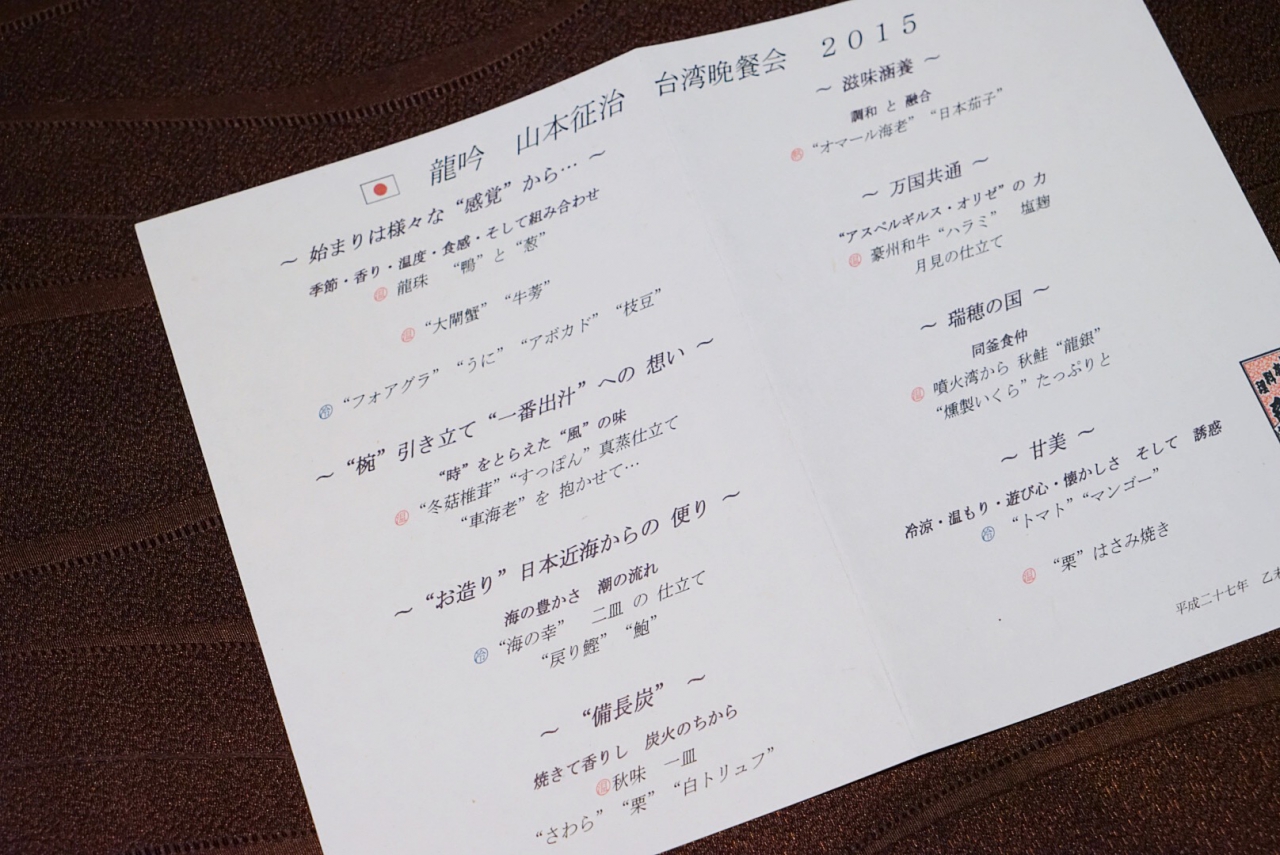 龍吟　山本征治　台湾晩餐会　２０１５
～ 始まりは様々な “感覚” から… ～
季節・香り・温度・食感・そして組み合わせ
温 龍珠　“鴨” と “葱”
温 “大閘蟹”　“牛蒡”
冷 “フォアグラ”　“うに”　“アボカド”　“枝豆”
～ “椀” 引き立て “一番出汁” への 想い ～
“時” をとらえた “風” の味
温 “冬菇椎茸” “すっぽん” 真蒸仕立て
“車海老” を 抱かせて…
～ “お造り” 日本近海からの 便り ～
海の豊かさ　潮の流れ
冷 “海の幸”　二皿 の 仕立て
“戻り鰹”　“鮑”
～ “備長炭” ～
焼きて香りし　炭火のちから
温 秋味　一皿
“さわら”　“栗”　“白トリュフ”
～ 滋味涵養 ～
調和 と 融合
“オマール海老”　“日本茄子”
～ 万国共通 ～
“アスペルギルス・オリゼ” の 力
温 豪州和牛 “ハラミ”　塩麹
月見の仕立て
～ 瑞穂の国 ～
同釜食仲
温 噴火湾から 秋鮭 “龍銀”
“燻製いくら” たっぷりと
～ 甘美 ～
冷涼・温もり・遊び心・懐かしさ　そして　誘惑
冷 “トマト” “マンゴー”
温 “栗” はさみ焼き
平成二十七年　乙